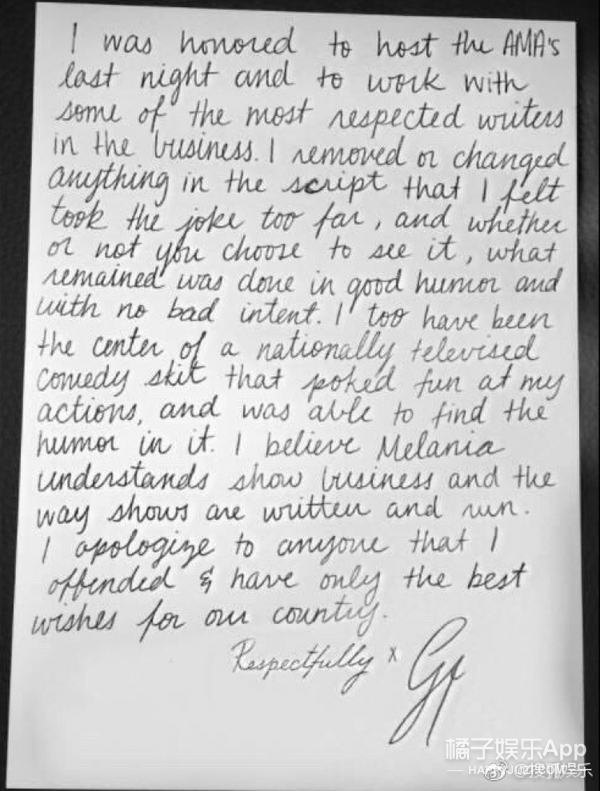 I was honored to host the AMA's
last night and to work with
some of the most respected writers
in the business. I removed or changed
anything in the script that I felt
took the joke too far, and whether
or not you choose to see it, what
remained was done in good humor and
with no bad intent. I too have been
the center of a nationally televised
comedy skit that poked fun at my
actions, and was able to find the
humor in it. I believe Melania
understands show business and the
way shows are written and run.
I apologize to anyone that I
offended & have only the best
wishes for our country.
Respectfully x
橘子娱乐App